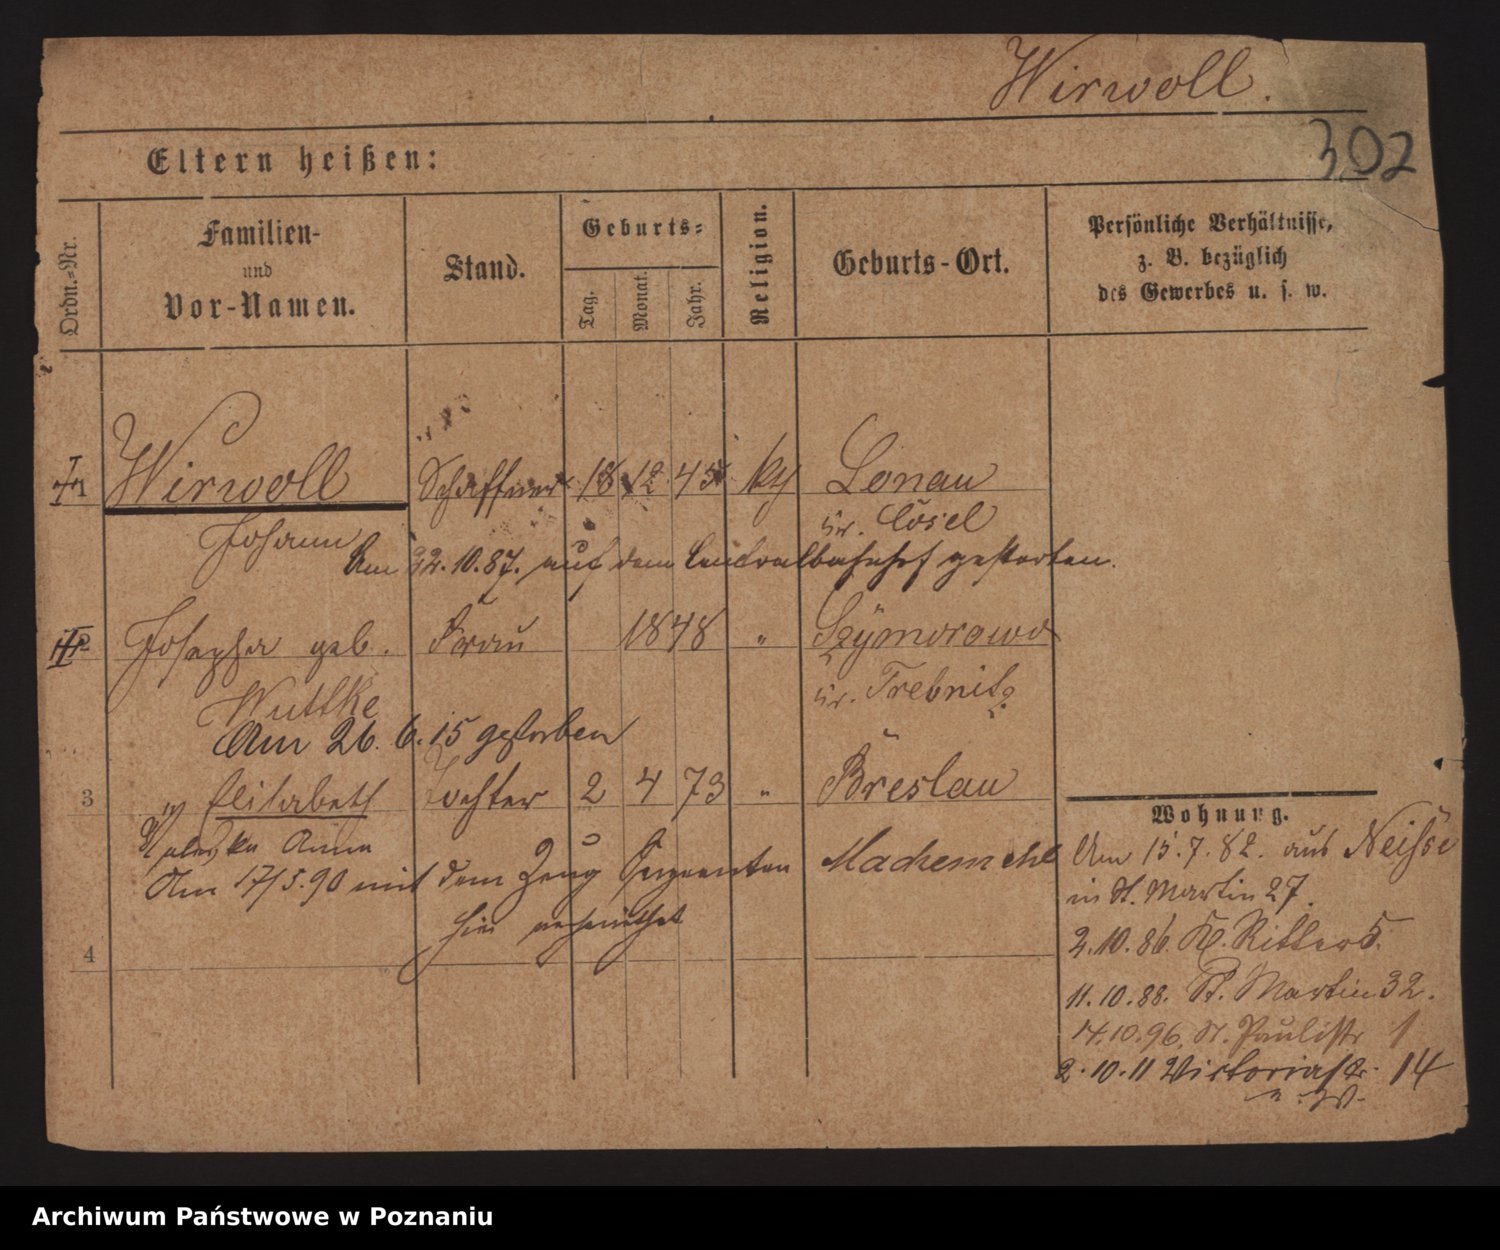 Wirwoll.
302
Eltern heißen:
Ordn.-Nr.
Familien-
und
Vor-Namen.
Stand.
Geburts-
Tag.
Monat.
Jahr.
Religion.
Geburts-Ort.
Persönliche Verhältnisse,
z. B. bezüglich
des Gewerbes u. s. w.
I Wirwoll Schaffner 18 12 45 kth Lonau
Johann Kr. Cosel
Am 22.10.87. auf dem Centralbahnhof gestorben.
II Josepha geb. Frau 1848 " Szymorowo
Wuttke Kr. Trebnitz
Am 26. 6. 15 gestorben
3 Elisabeth Tochter 2 4 73 " Breslau
Valeska Anna
Am 17/5.90 mit dem Zeug Sergeanten Machemehl
hier verheirathet
4
Wohnung.
Am 15.7.82. aus Neisse
in St. Martin 27.
2.10.86. Kl. Ritter 5.
11.10.88. St. Martin 32.
14.10.96. St. Paulistr 1
2.10.11 Victoriastr. 14
Archiwum Państwowe w Poznaniu